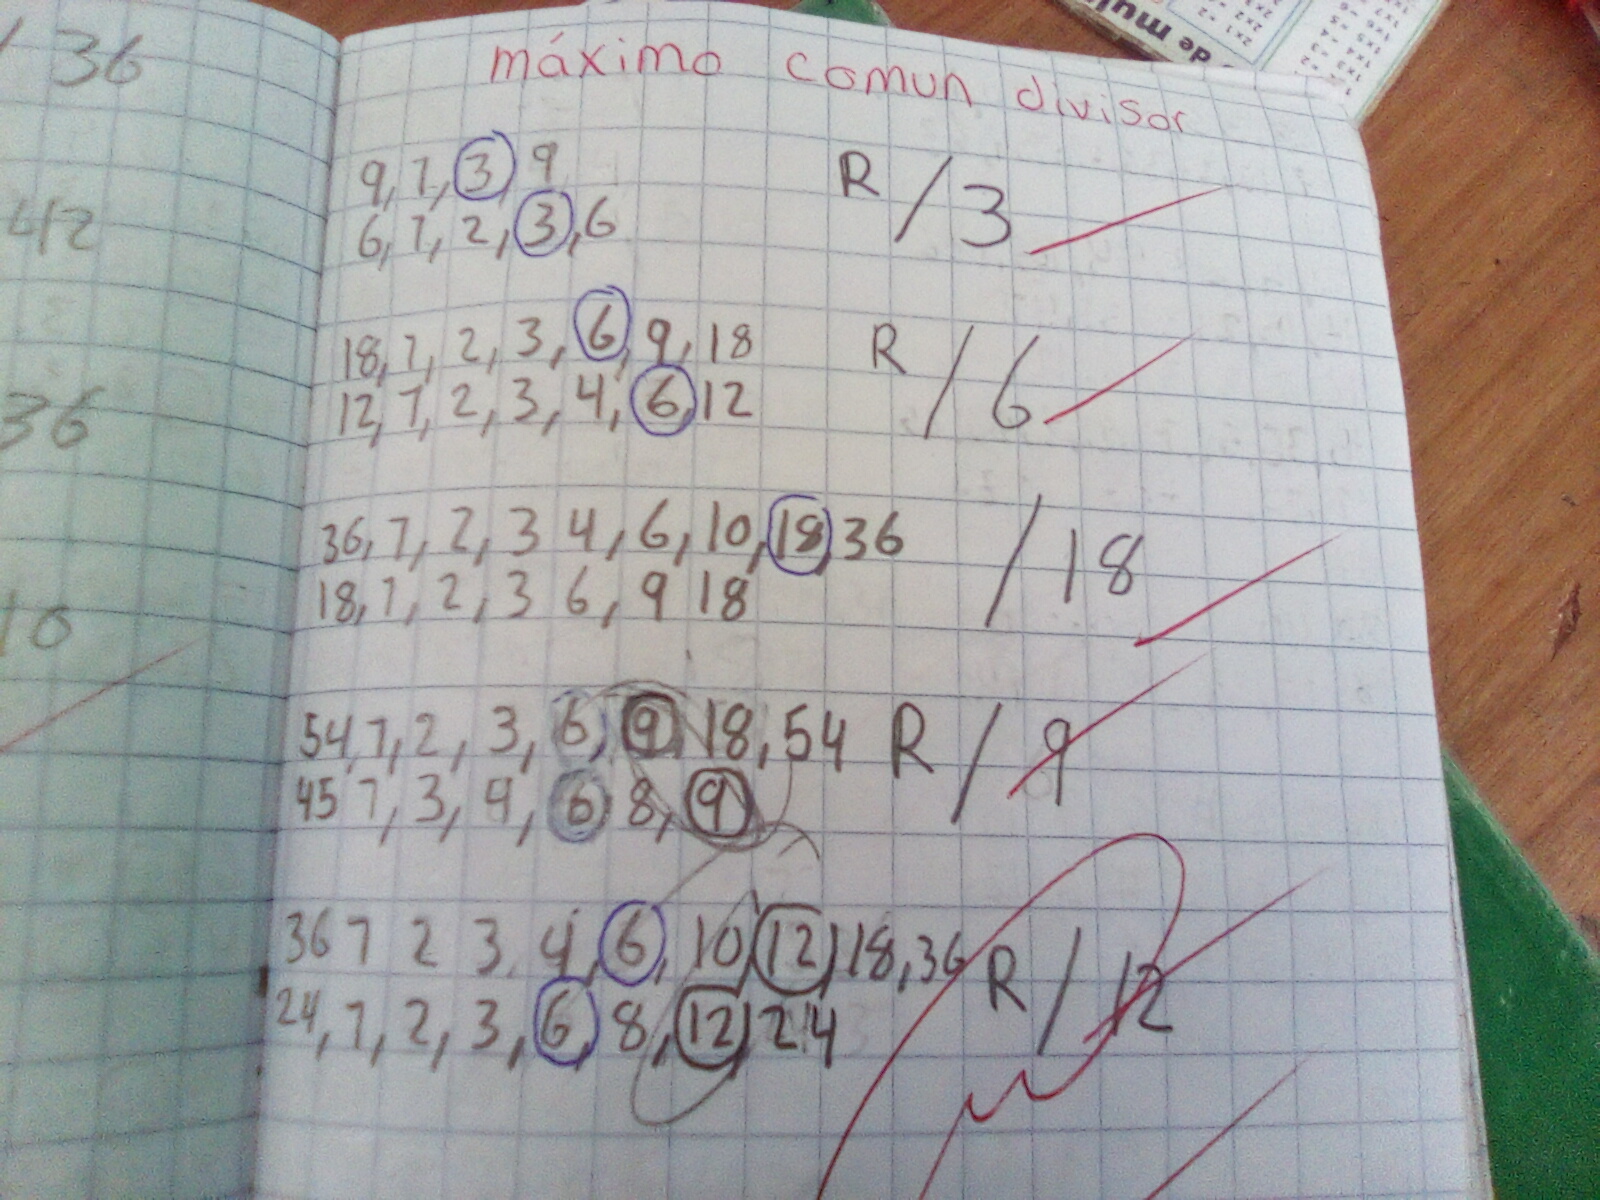 36
42
36
10
máximo comun divisor
9, 1, 3, 9 R/3
6, 1, 2, 3, 6
18, 1, 2, 3, 6, 9, 18 R/6
12, 1, 2, 3, 4, 6, 12
36, 1, 2, 3 4, 6, 10, 18, 36 /18
18, 1, 2, 3 6, 9 18
54, 1, 2, 3, 6, 9 18, 54 R/9
45 1, 3, 9, 6 8, 9
36 1 2 3 4, 6, 10, 12, 18, 36 R/12
24, 1, 2, 3, 6, 8, 12, 24
de mul